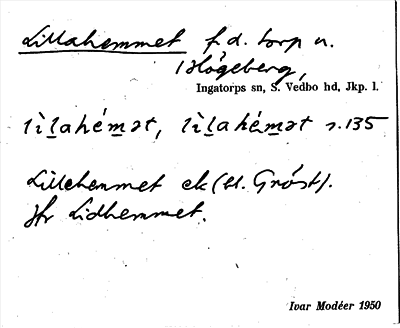 Lillahemmet f.d. torp u.
Högeberg,
Ingatorps sn, S. Vedbo hd, Jkp. l.
lìlahémət, lìlahémət s.135
Lillehemmet ek (bl. Gröst).
Jfr Lidhemmet.
Ivar Modéer 1950